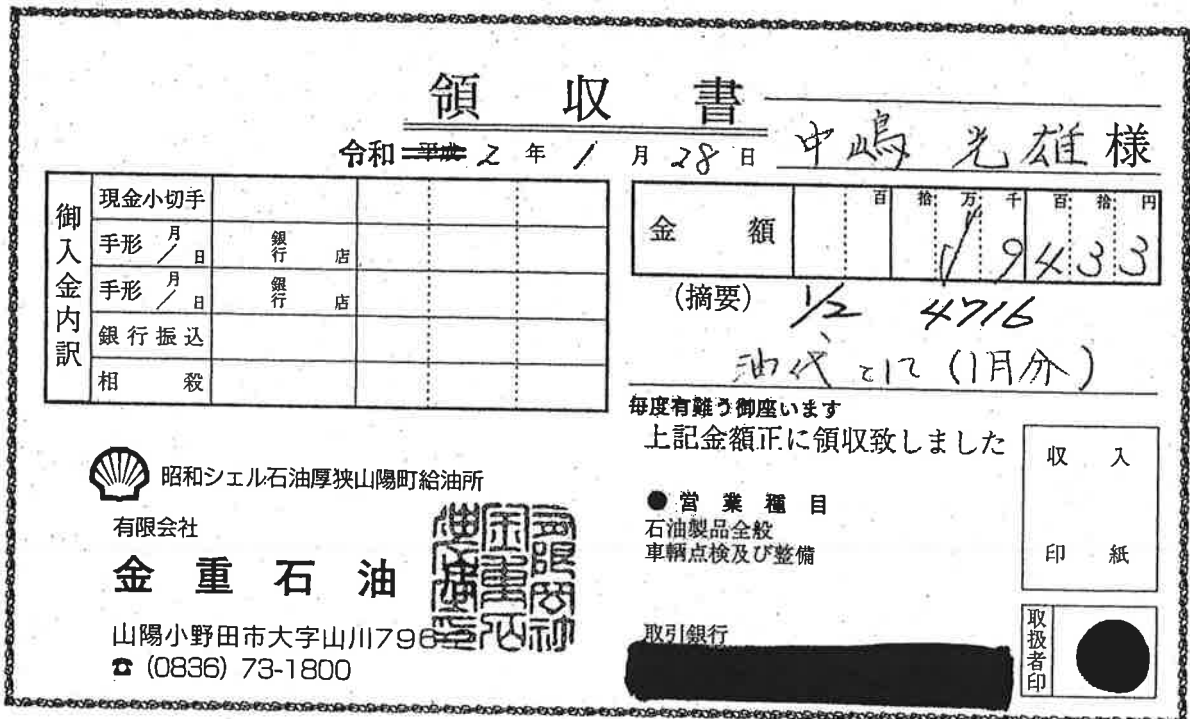 領収書
中嶋光雄様
令和 平成 2年1月28日
御入金内訳
現金小切手
手形 月/日 銀行 店
手形 月/日 銀行 店
銀行振込
相殺
金額 百 拾 万 千 百 拾 円
19433
(摘要) 1/2 4716
油代として(1月分)
毎度有難う御座います
上記金額正に領収致しました
収入
印紙
●営業種目
石油製品全般
車輌点検及び整備
取引銀行
取扱者印
昭和シェル石油厚狭山陽町給油所
有限会社
金重石油
山陽小野田市大字山川796
☎(0836)73-1800